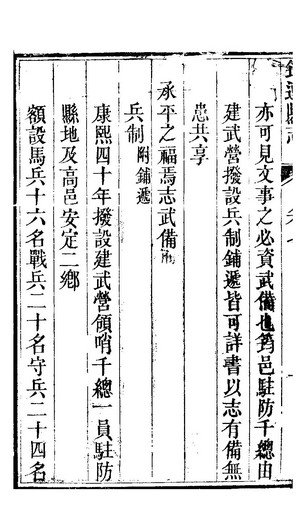 亦可見文事之必資武備也筠邑駐防千總由
建武營撥設兵制鋪遞皆可詳書以志有備無
患共享
承平之福焉志武備
兵制附鋪遞
康熙四十年撥設建武營領哨千總一員駐防
縣地及高邑安定二鄉
額設馬兵十六名戰兵二十名守兵二十四名